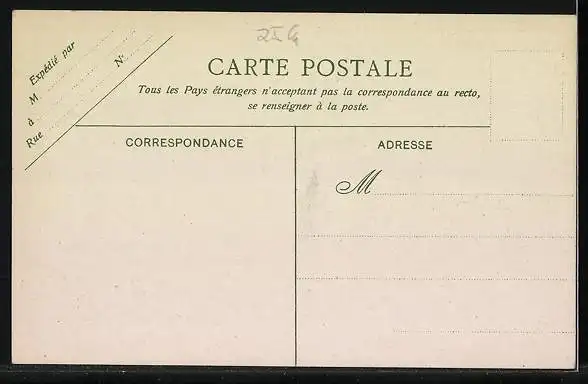 Expédié par
M
à
Rue N°
CARTE POSTALE
Tous les Pays étrangers n'acceptant pas la correspondance au recto,
se renseigner à la poste.
CORRESPONDANCE
ADRESSE
M